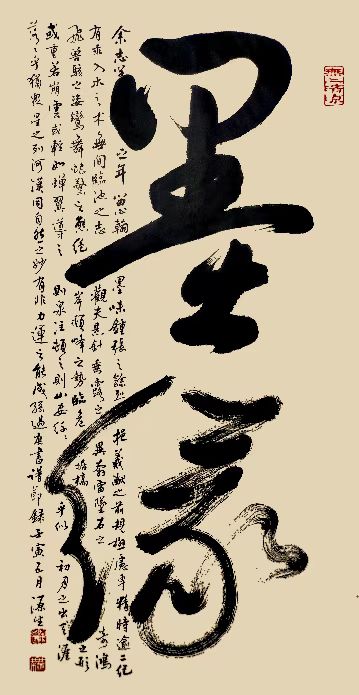 墨緣
余志學之年留心翰墨味鍾張之餘烈挹羲獻之前規極慮專精時逾二紀
有乖入木之術無間臨池之志觀夫懸針垂露之異奔雷墜石之奇鴻
飛獸駭之姿鸞舞蛇驚之態絕岸頹峰之勢臨危據槁之形
或重若崩雲或輕如蟬翼導之則泉注頓之則山安纖々乎似初月之出天涯
落々乎猶眾星之列河漢同自然之妙有非力運之能成孫過庭書譜節錄壬寅五月源生